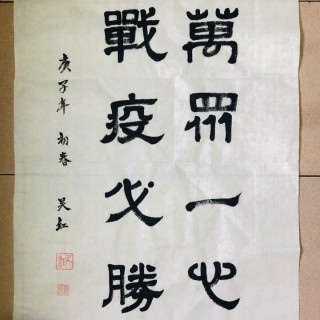 萬眾一心
戰疫必勝
庚子年 初春 吴红